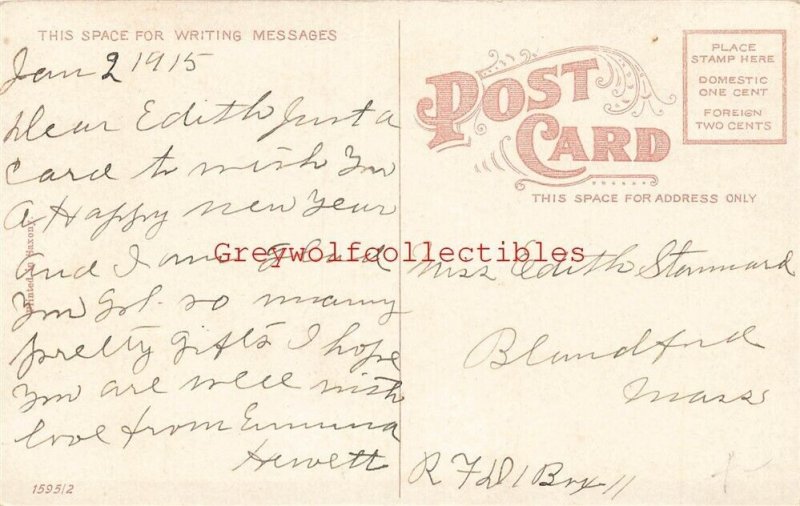 THIS SPACE FOR WRITING MESSAGES
Jan 2 1915
Dear Edith Just a
card to wish you
A Happy new year
and I am glad
you got so many
pretty gifts I hope
you are well with
love from Emma
Hewett
Printed in Saxony.
1595/2
POST
CARD
PLACE
STAMP HERE
DOMESTIC
ONE CENT
FOREIGN
TWO CENTS
THIS SPACE FOR ADDRESS ONLY
Greywolfcollectibles
Miss Edith Stannard
Blandford
Mass
R F D 1 Box 11